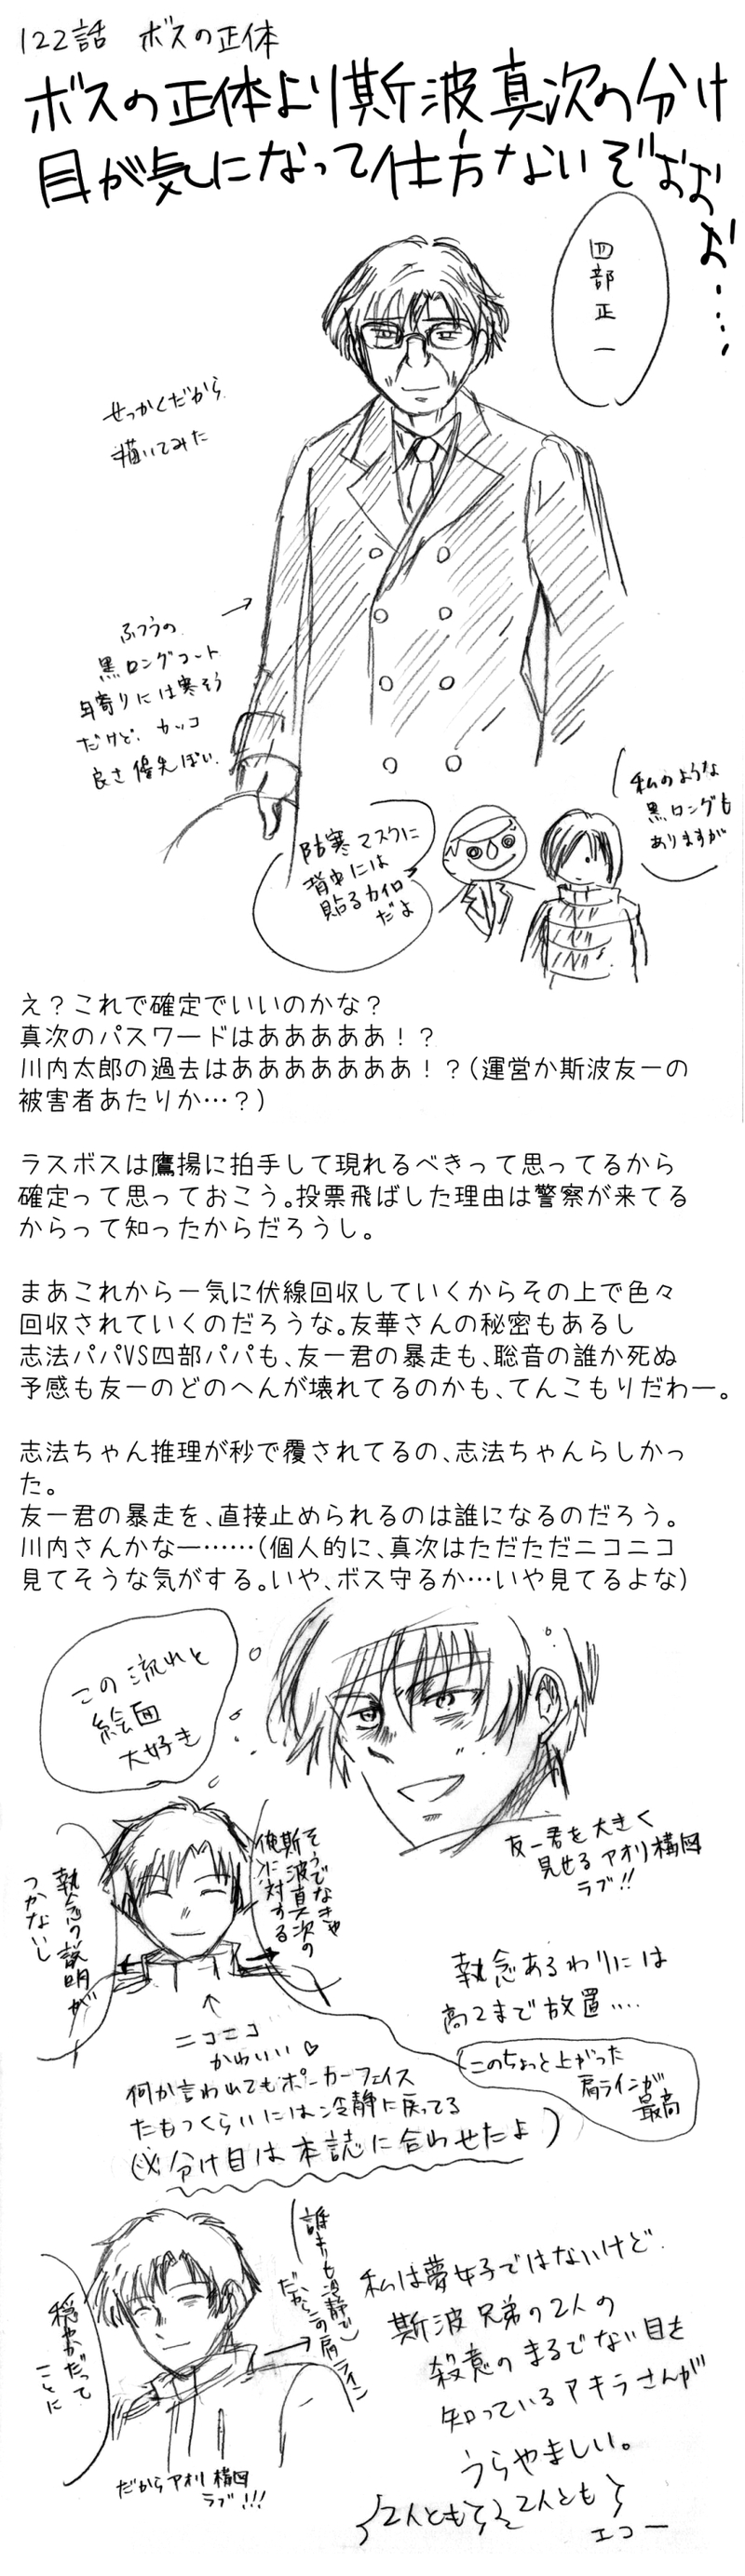 122話 ボスの正体
ボスの正体より斯波真次の分け
目が気になって仕方ないぞおお
お・・・・
四部正一
せっかくだから
描いてみた
ふつうの
黒ロングコート
年寄りには寒そう
だけど、カッコ
良さ優先ぽい.
私のような
黒ロングも
ありますが
防寒マスクに
背中には
貼るカイロ
だよ
え？これで確定でいいのかな？
真次のパスワードはあああああ！？
川内太郎の過去はあああああああ！？(運営か斯波友一の
被害者あたりか…？)
ラスボスは鷹揚に拍手して現れるべきって思ってるから
確定って思っておこう。投票飛ばした理由は警察が来てる
からって知ったからだろうし。
まあこれから一気に伏線回収していくからその上で色々
回収されていくのだろうな。友華さんの秘密もあるし
志法パパVS四部パパも、友一君の暴走も、聡音の誰か死ぬ
予感も友一のどのへんが壊れてるのかも、てんこもりだわー。
志法ちゃん推理が秒で覆されてるの、志法ちゃんらしかっ
た。
友一君の暴走を、直接止められるのは誰になるのだろう。
川内さんかなー……(個人的に、真次はただただニコニコ
見てそうな気がする。いや、ボス守るか…いや見てるよな)
この流れと
絵面
大好き
友一君を大きく
見せるアオリ構図
ラブ!!
そうでなきゃ
斯波真次の
俺に対する
執念の説明が
つかないし
執念あるわりには
高2まで放置....
ニコニコ
かわいい♡
このちょっと上がった
肩ラインが
最高
何か言われてもポーカーフェイス
たもつくらいには冷静に戻ってる
(※分け目は本誌に合わせたよ)
誰よりも冷静で
穏やかだって
ことに
だからこの肩ライン
だからアオリ構図
ラブ!!!
私は夢女子ではないけど.
斯波兄弟の2人の
殺意のまるでない目を
知っているアキラさんが
うらやましい。
2人とも 2人とも
エコー